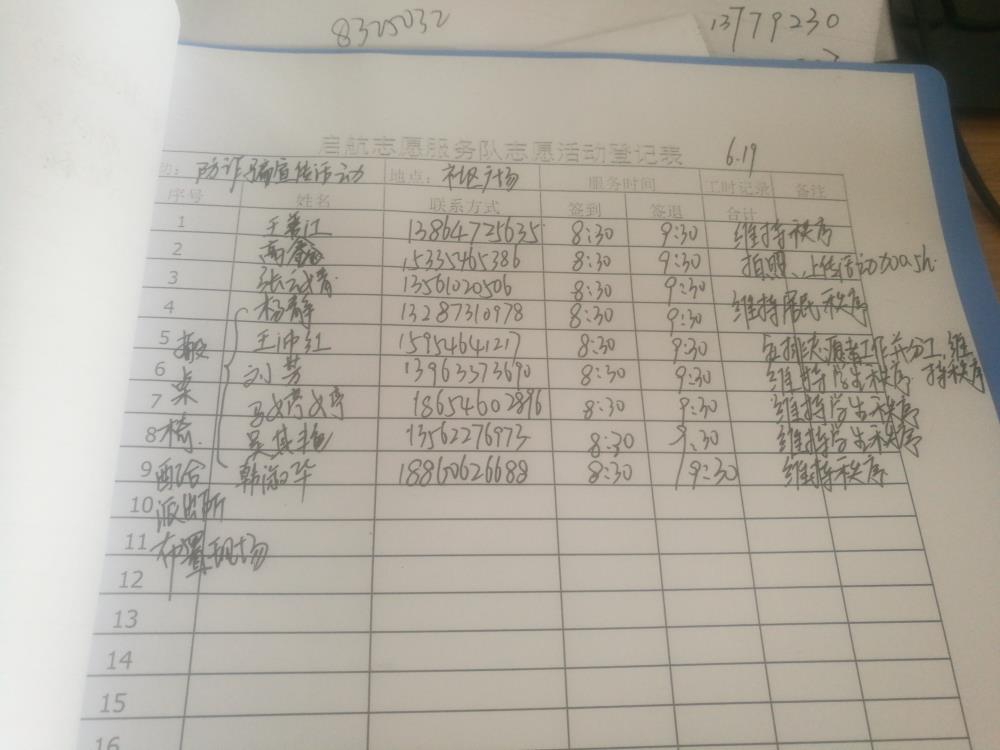 8325032
13779230
启航志愿服务队志愿活动登记表 6.19
防诈骗宣传活动 地点：社区广场 服务时间 工时记录 备注
序号 姓名 联系方式 签到 签退 合计
1 13864725635 8:30 9:30 维持秩序
2 高鑫 15335465386 8:30 9:30 拍照、上传活动
3 13561020506 8:30 9:30
4 杨静 13287310978 8:30 9:30 维持居民秩序
5 搬 15954641217 8:30 9:30 安排志愿者工作并分工，维
6 桌 刘芳 13963373690 8:30 9:30 维持学生秩序 持秩序
7 椅 马婷婷 18654602896 8:30 9:30 维持学生秩序
8 吴其艳 13562276973 8:30 9:30 维持学生秩序
9 配合 韩淑华 18860626688 8:30 9:30 维持秩序
10 派出所
11 布置现场
12
13
14
15
16